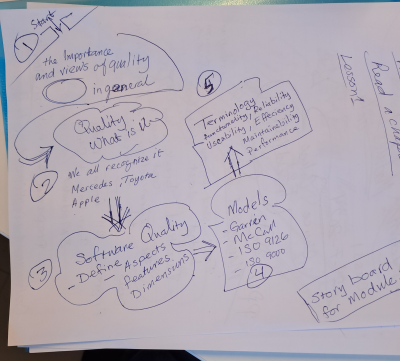 1
Start
the Importance
and views of quality
in general
Quality
What is it
2
We all recognize it
Mercedes, Toyota
Apple
3
Software Quality
- Define - Aspects
Features
Dimensions
Models
- Garvin
- McCall
- ISO 9126
- ISO 9000
4
5
Terminology
Functionality, Reliability
Useability, Efficiency
Maintainability
Performance
Lesson 1
Read a chapt
Story board
for module